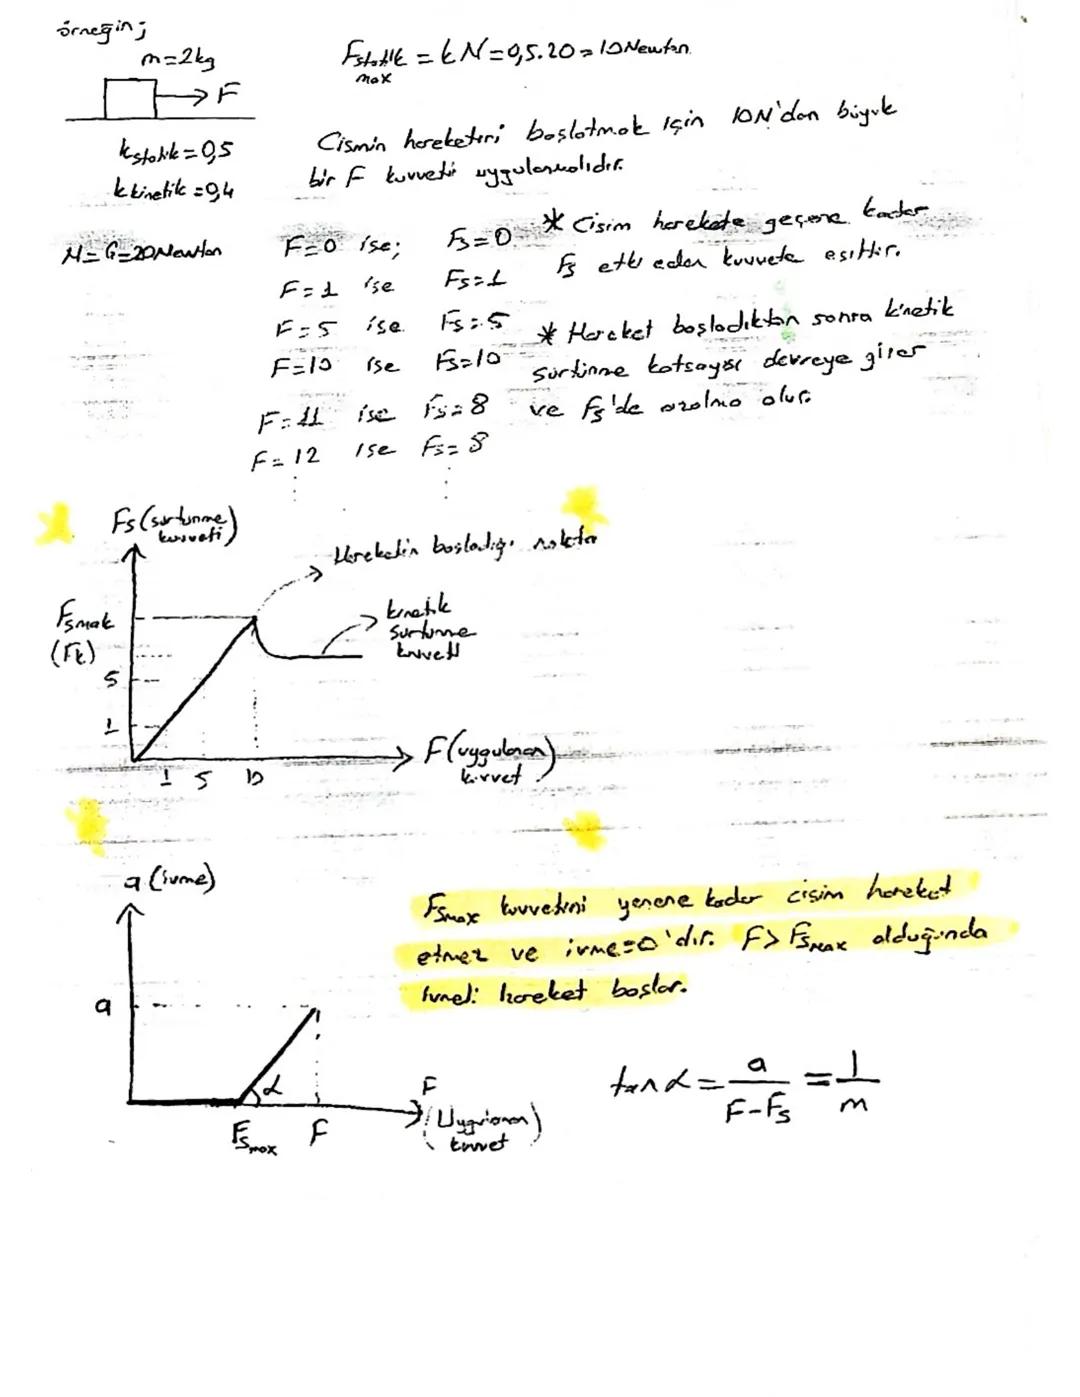 örneğin;
m=2kg
F
kstatik=0,5
kkinetik=0,4
N=G=20Newton
Fstatik max = kN=0,5.20=10Newton
Cismin hareketini başlatmak için 10N'dan büyük
bir F kuvveti uygulanmalıdır.
F=0 ise; Fs=0
F=1 ise Fs=1
F=5 ise Fs=5
F=10 ise Fs=10
F=11 ise Fs=8
F=12 ise Fs=8
* Cisim harekete geçene kadar
Fs etki eden kuvvete eşittir.
* Hareket başladıktan sonra kinetik
sürtünme katsayısı devreye girer
ve Fs'de azalma olur.
Fs (sürtünme kuvveti)
Hareketin başladığı nokta
kinetik
sürtünme
kuvveti
Fsmak
(Fk)
5
1
1 5 10
F(uygulanan kuvvet)
a (ivme)
a
α
Fsmax F
F
(Uygulanan kuvvet)
Fsmax kuvvetini yenene kadar cisim hareket
etmez ve ivme=0'dır. F>Fsmax olduğunda
ivmeli hareket başlar.
tanα = a / F-Fs = 1 / m